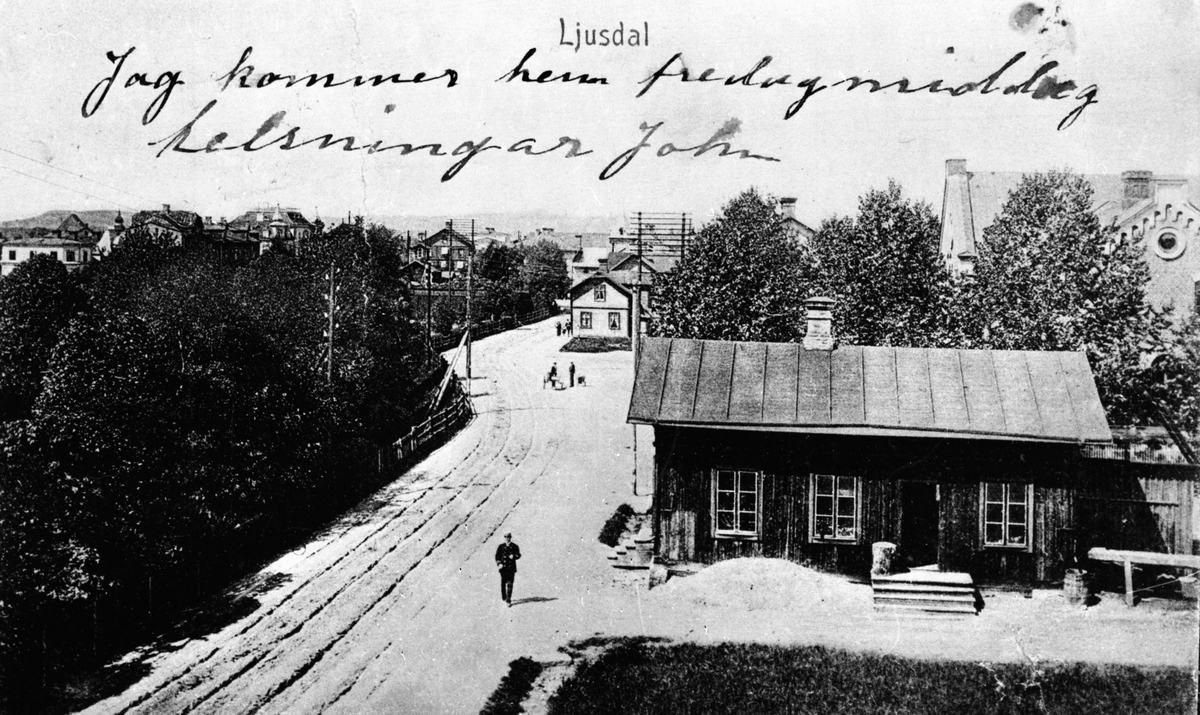 Ljusdal
Jag kommer hem fredagmiddag
helsningar John